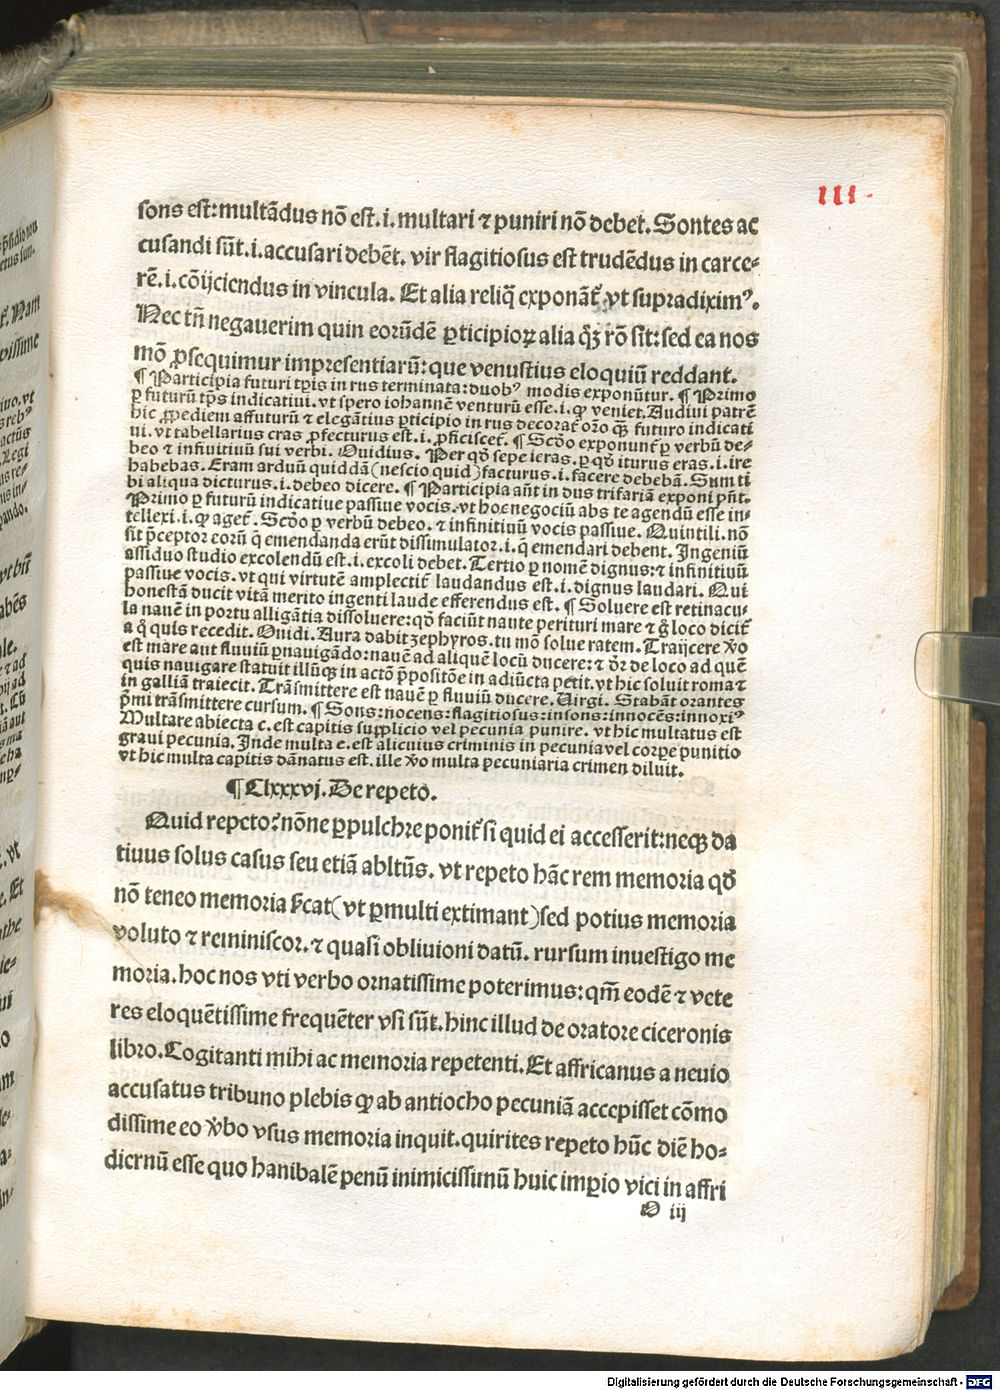 111.
sons est: multãdus nõ est .i. multari ⁊ puniri nõ debet. Sontes ac
cusandi sũt .i. accusari debẽt. vir flagitiosus est trudẽdus in carce⸗
rẽ .i. cõijciendus in vincula. Et alia reliq̃ exponãt᷑ vt supradiximꝰ.
Nec tñ negauerim quin eorũdẽ ꝑticipioꝝ alia q̃ꝫ rõ sit: sed ea nos
mõ ꝓsequimur impresentiarũ: que venustius eloquiũ reddant.
¶ Participia futuri tꝑis in rus terminata: duobꝰ modis exponũtur. ¶ Primo
ꝑ futurũ tꝑs indicatiui. vt spero iohannẽ venturũ esse .i. ꝙ veniet. Audiui patrẽ
hic ꝓpediem affuturũ ⁊ elegãtius ꝑticipio in rus decorat᷑ orõ ꝙ̃ futuro indicati
ui. vt tabellarius cras ꝓfecturus est .i. ꝓficiscet᷑. ¶ Scḋo exponunt᷑ ꝑ verbũ de⸗
beo ⁊ infinitiuũ sui verbi. Ouidius. Per qḋ sepe ieras. ꝑ qḋ iturus eras .i. ire
habebas. Eram arduũ quiddã (nescio quid) facturus .i. facere debebã. Sum ti
bi aliqua dicturus .i. debeo dicere. ¶ Participia aũt in dus trifariã exponi pñt.
Primo ꝑ futurũ indicatiue passiue vocis. vt hoc negociũ abs te agendũ esse in⸗
tellexi .i. ꝙ aget᷑. Scḋo ꝑ verbũ debeo. ⁊ infinitiuũ vocis passiue. Quintili. nõ
sit p̃ceptor eorũ q̃ emendanda erũt dissimulator .i. q̃ emendari debent. Ingeniũ
assiduo studio excolendũ est .i. excoli debet. Tertio ꝑ nomẽ dignus: ⁊ infinitiuũ
passiue vocis. vt qui virtutẽ amplectit᷑ laudandus est .i. dignus laudari. Qui
honestã ducit vitã merito ingenti laude efferendus est. ¶ Soluere est retinacu⸗
la nauẽ in portu alligãtia dissoluere: qḋ faciũt naute perituri mare ⁊ g̊ loco dicit᷑
a q̊ quis recedit. Ouidi. Aura dabit zephyros. tu mõ solue ratem. Traijcere v̊o
est mare aut fluuiũ ꝑnauigãdo: nauẽ ad aliquẽ locũ ducere: ⁊ dr̃ de loco ad quẽ
quis nauigare statuit illũqꝫ in actõ p̃positõe in adiũcta petit. vt hic soluit roma ⁊
in galliã traiecit. Trãsmittere est nauẽ ꝑ fluuiũ ducere. Uirgi. Stabãt orantes
p̃mi trãsmittere cursum. ¶ Sons: nocens: flagitiosus: insons: innocẽs: innoxiꝰ
Multare abiecta c. est capitis supplicio vel pecunia punire. vt hic multatus est
graui pecunia. Inde multa e. est alicuius criminis in pecunia vel corꝑe punitio
vt hic multa capitis dãnatus est. ille v̊o multa pecuniaria crimen diluit.
¶ Clxxxvj. De repeto.
Quid repeto? nõne ꝑpulchre ponit᷑ si quid ei accesserit: neqꝫ da
tiuus solus casus seu etiã abltũs. vt repeto hãc rem memoria qḋ
nõ teneo memoria p̃cat (vt ꝑmulti extimant) sed potius memoria
voluto ⁊ reminiscor. ⁊ quasi obliuioni datũ. rursum inuestigo me
moria. hoc nos vti verbo ornatissime poterimus: qm̃ eodẽ ⁊ vete
res eloquẽtissime frequẽter vsi sũt. hinc illud de oratore ciceronis
libro. Cogitanti mihi ac memoria repetenti. Et affricanus a neuio
accusatus tribuno plebis ꝙ ab antiocho pecuniã accepisset cõmo
dissime eo v̊bo vsus memoria inquit. quirites repeto hũc diẽ ho⸗
diernũ esse quo hanibalẽ penũ inimicissimũ huic imꝑio vici in affri
O iij
Digitalisierung gefördert durch die Deutsche Forschungsgemeinschaft - DFG